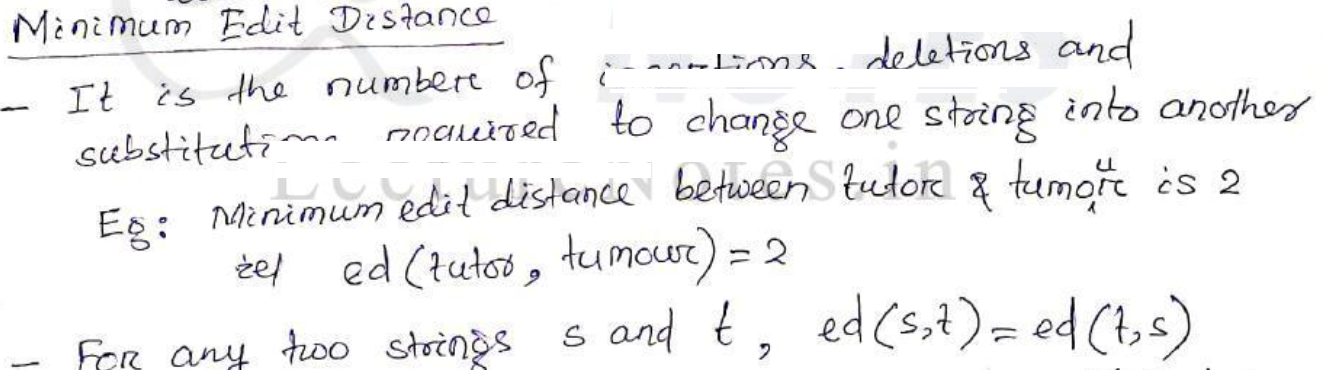 Minimum Edit Distance
- It is the number of deletions and
required to change one string into another
Eg: Minimum edit distance between tutor & tumour is 2
ie, ed (tutor, tumour) = 2
- For any two strings s and t, ed(s,t) = ed(t,s)